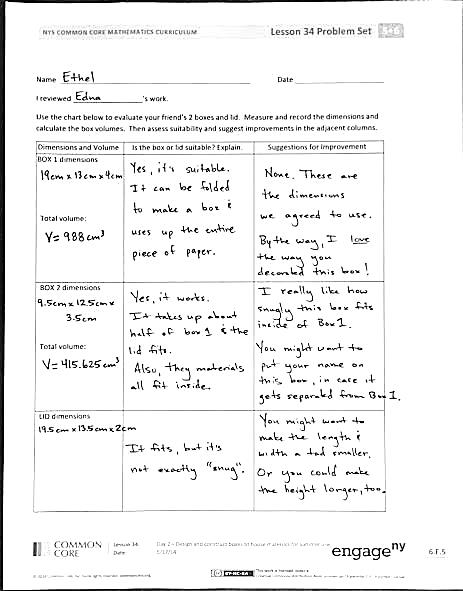 NYS COMMON CORE MATHEMATICS CURRICULUM
Lesson 34 Problem Set 5•6
Name Ethel
Date
I reviewed Edna 's work.
Use the chart below to evaluate your friend's 2 boxes and lid. Measure and record the dimensions and
calculate the box volumes. Then assess suitability and suggest improvements in the adjacent columns.
Dimensions and Volume
Is the box or lid suitable? Explain.
Suggestions for Improvement
BOX 1 dimensions
19cm x 13cm x 4cm
Total volume:
V= 988 cm³
Yes, it's suitable.
It can be folded
to make a box &
uses up the entire
piece of paper.
None. These are
the dimensions
we agreed to use.
By the way, I love
the way you
decorated this box!
BOX 2 dimensions
9.5cm x 12.5cm x
3.5cm
Total volume:
V= 415.625 cm³
Yes, it works.
It takes up about
half of box 1 & the
lid fits.
Also, they materials
all fit inside.
I really like how
snugly this box fits
inside of Box 1.
You might want to
put your name on
this box, in case it
gets separated from Box 1.
LID dimensions
19.5 cm x 13.5cm x 2cm
It fits, but it's
not exactly "snug".
You might want to
make the length &
width a tad smaller.
Or you could make
the height longer, too.
COMMON
CORE
Lesson 34:
Date:
Day 2—Design and construct boxes to house materials for summer use.
engage ny
6.F.5
BY-NC-SA